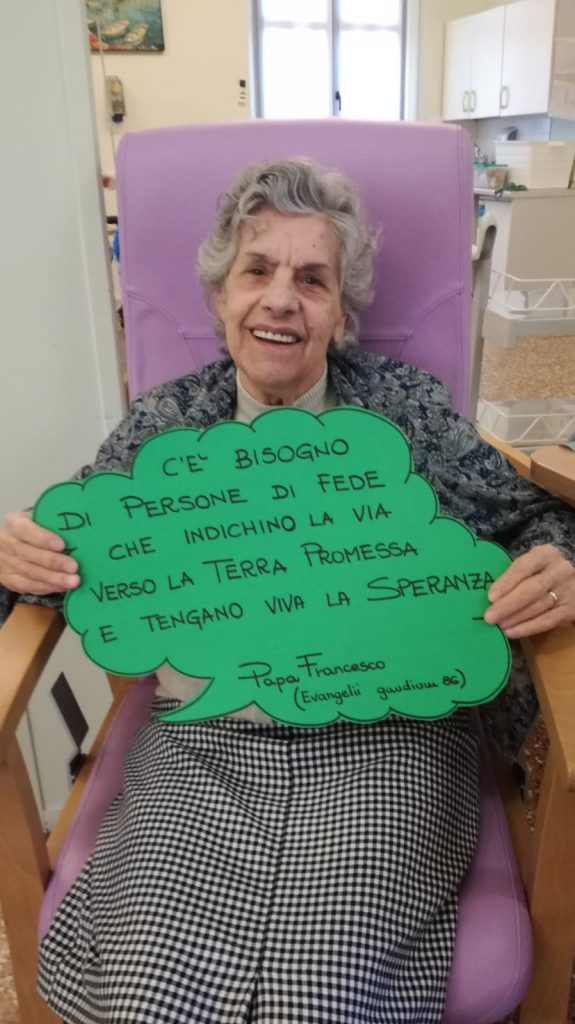 C'E' BISOGNO
DI PERSONE DI FEDE
CHE INDICHINO LA VIA
VERSO LA TERRA PROMESSA
E TENGANO VIVA LA SPERANZA
Papa Francesco
(Evangelii gaudium 86)